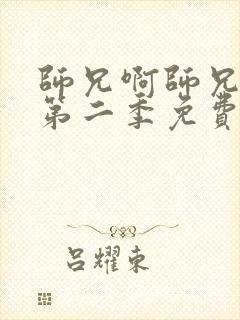 師兄啊師兄
第二季免費
呂耀東